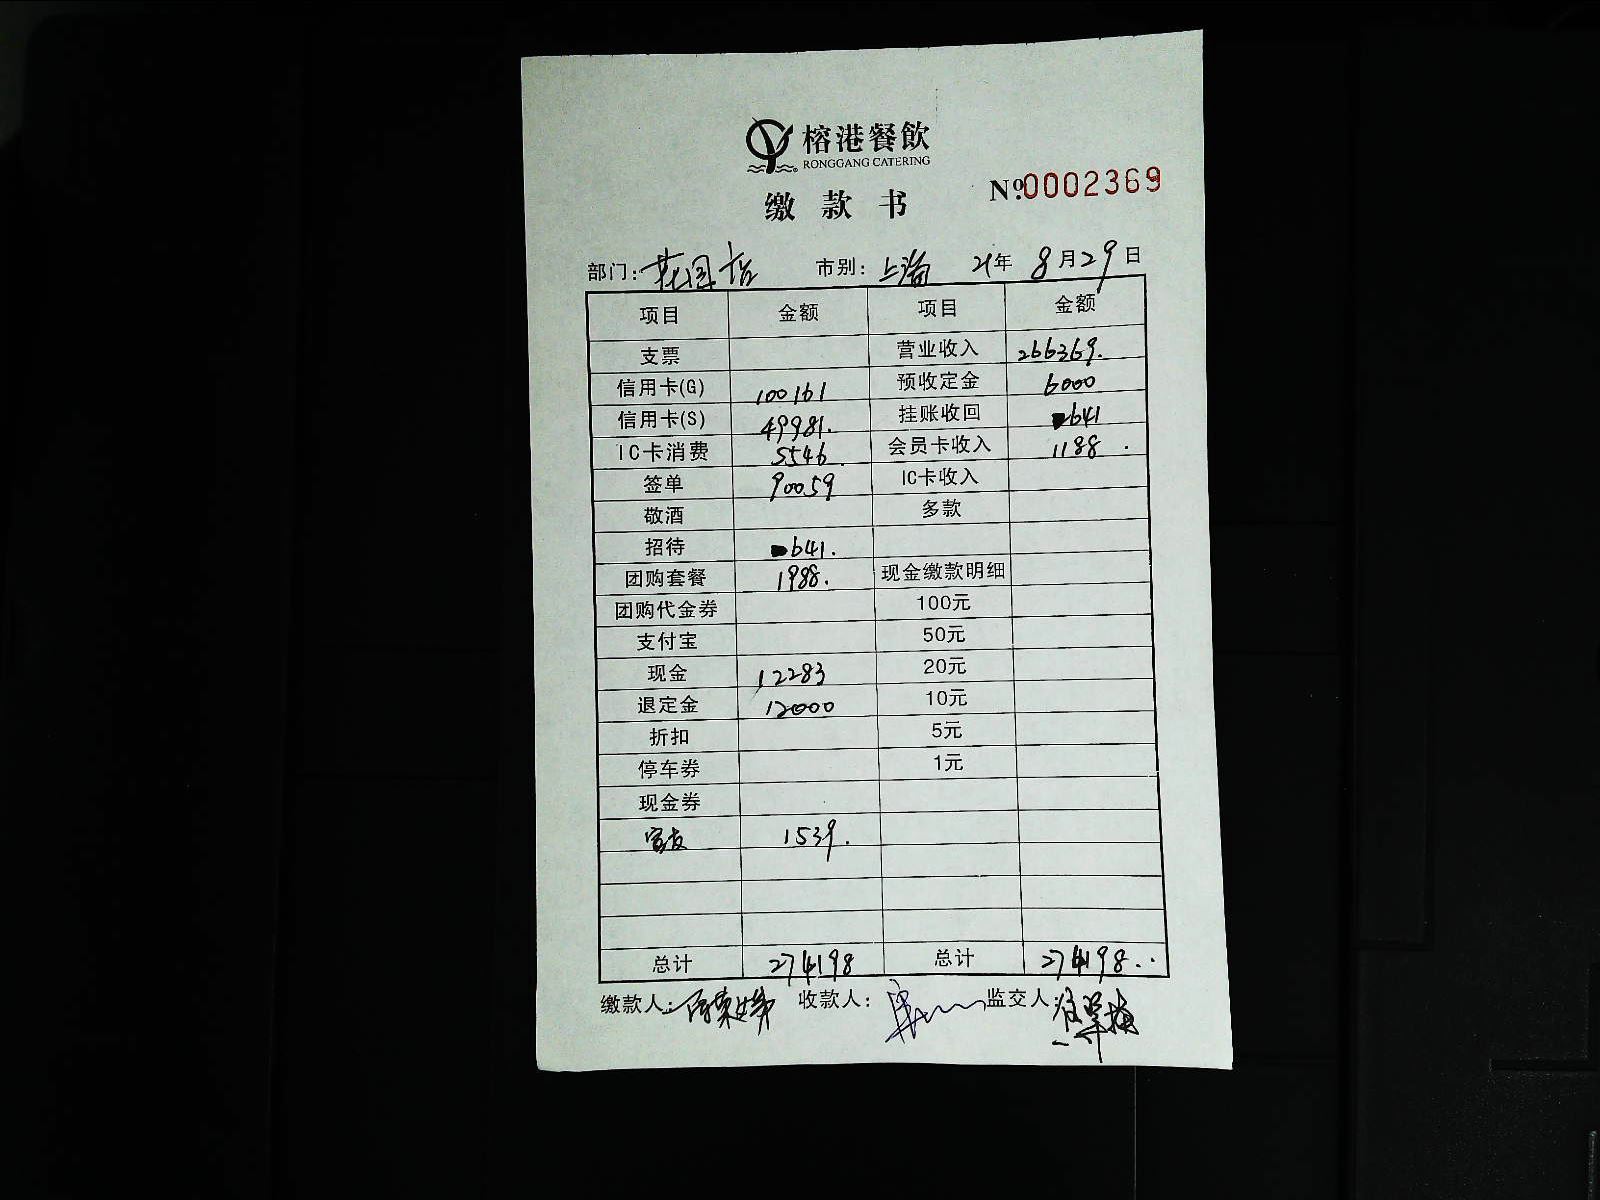 榕港餐飲
RONGGANG CATERING
缴款书 Nº.0002369
部门: 花园店 市别: 上海 21年 8月29日
项目 金额 项目 金额
支票 营业收入 266369.
信用卡(G) 100161 预收定金 6000
信用卡(S) 49981. 挂账收回 641
IC卡消费 5546. 会员卡收入 1188.
签单 90059 IC卡收入
敬酒 多款
招待 641.
团购套餐 1988. 现金缴款明细
团购代金券 100元
支付宝 50元
现金 12283 20元
退定金 12000 10元
折扣 5元
停车券 1元
现金券
1539.
总计 274198 总计 274198..
缴款人: 收款人: 监交人: